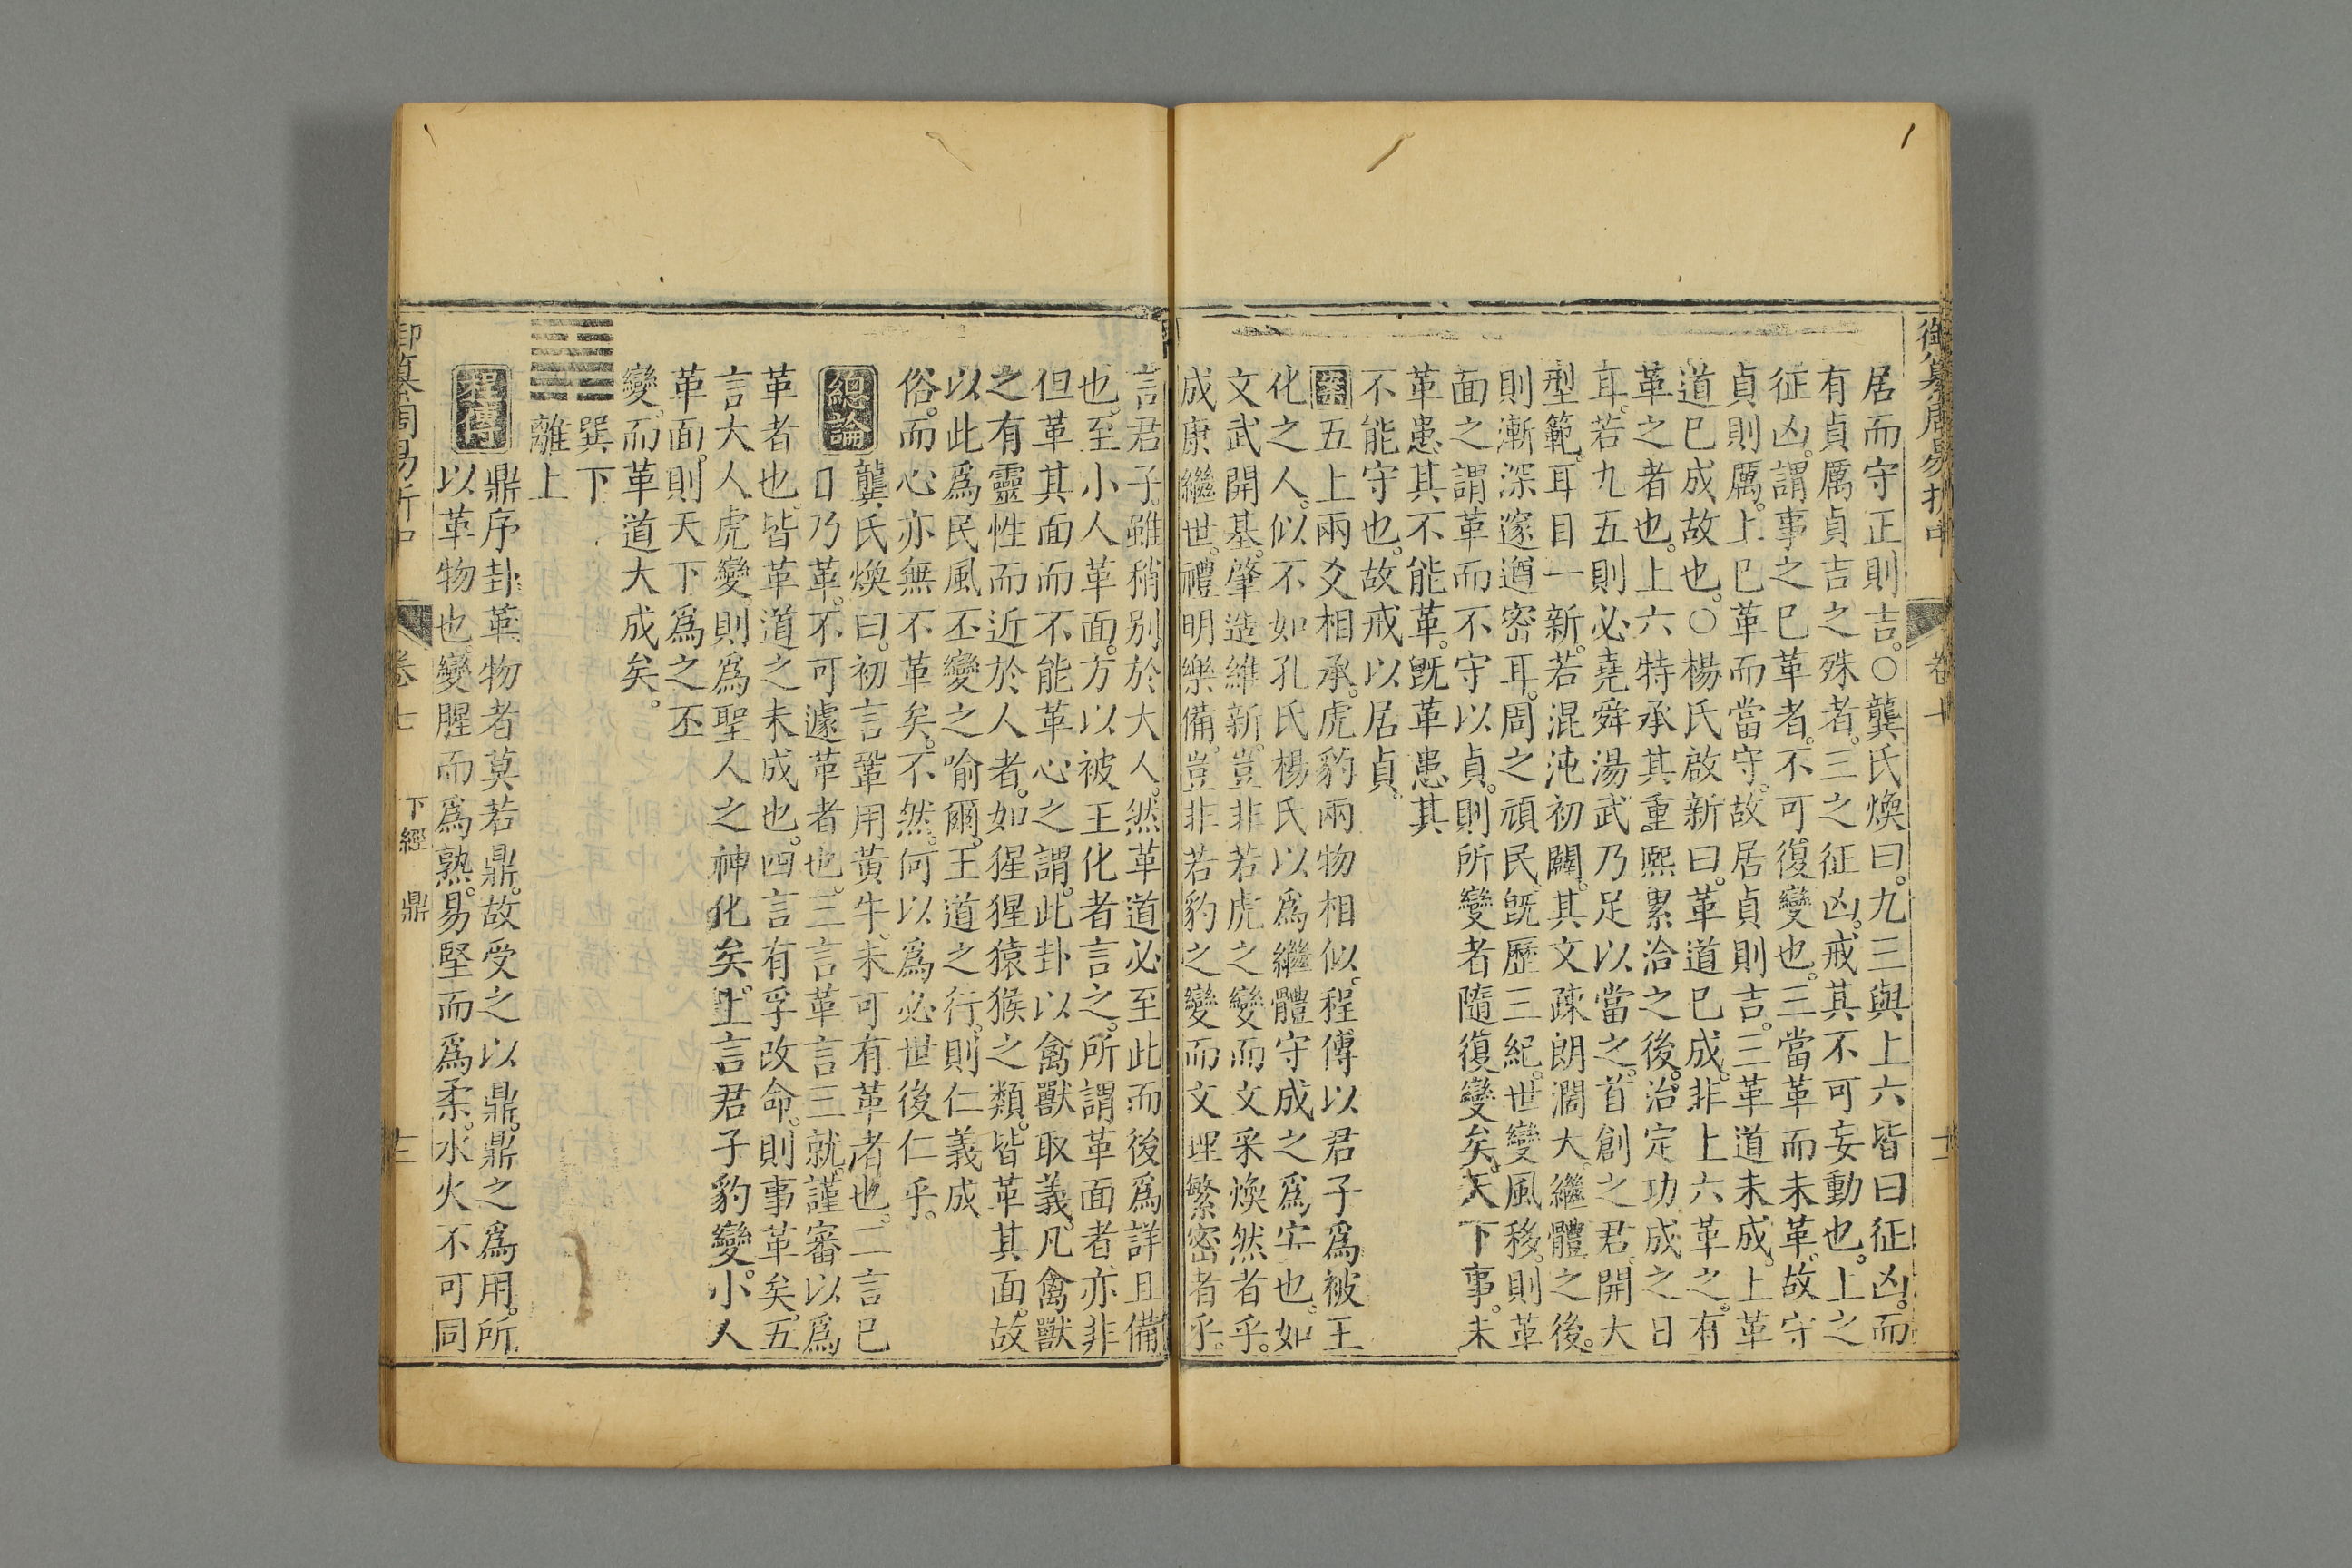 御纂周易折中 卷七
居而守正則吉。○龔氏煥曰。九三與上六皆曰征凶。而
有貞厲貞吉之殊者。三之征凶。戒其不可妄動也。上之
征凶。謂事之已革者。不可復變也。三當革而未革。故守
貞則厲。上已革而當守。故居貞則吉。三革道未成。上革
道已成故也。○楊氏啟新曰。革道已成。非上六革之。有
革之者也。上六特承其重熙累洽之後。治定功成之日
耳。若九五則必堯舜湯武乃足以當之。首創之君。開大
型範。耳目一新。若混沌初闢。其文疎朗濶大。繼體之後。
則漸深邃遒密耳。周之頑民。既歷三紀。世變風移。則革
面之謂。革而不守以貞。則所變者隨復變矣。天下事。未
革患其不能革。既革患其
不能守也。故戒以居貞。
案五上兩爻相承。虎豹兩物相似。程傳以君子為被王
化之人。似不如孔氏楊氏以為繼體守成之為安也。如
文武開基。肇造維新。豈非若虎之變而文采煥然者乎。
成康繼世。禮明樂備。豈非若豹之變而文理繁密者乎。
言君子。雖稍別於大人。然革道必至此而後為詳且備
也。至小人革面。方以被王化者言之。所謂革面者。亦非
但革其面而不能革心之謂。此卦以禽獸取義。凡禽獸
之有靈性而近於人者。如猩猩猿猴之類。皆革其面。故
以此為民風丕變之喻爾。王道之行。則仁義成
俗。而心亦無不革矣。不然。何以為必世後仁乎。
總論 龔氏煥曰。初言鞏用黃牛。未可有革者也。二言已
日乃革。不可遽革者也。三言革言三就。謹審以為
革者也。皆革道之未成也。四言有孚改命。則事革矣。五
言大人虎變。則為聖人之神化矣。上言君子豹變。小人
革面。則天下為之丕
變。而革道大成矣。
巽下
離上
程傳 鼎序卦革物者莫若鼎。故受之以鼎。鼎之為用。所
以革物也。變腥而為熟。易堅而為柔。水火不可同
御纂周易折中 卷七 下經 鼎